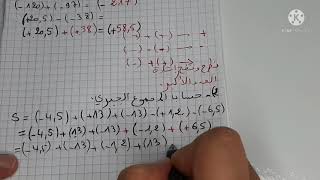 (-120)+(-97) = (-217)
(+20,5) - (-38) =
(+20,5) + (+38) = (+58,5)
(-) + (-) → -
(-) + (+) 
(+) + (-)
العدد الأكبر.
حساب المجموع الجبري.
S = (-4,5) + (+13) + (+13) - (+1,2) - (-6,5)
= (-4,5) + (13) + (+13) + (-1,2) + (+6,5)
= (-4,5) + (-13) + (-1,2) + (13)